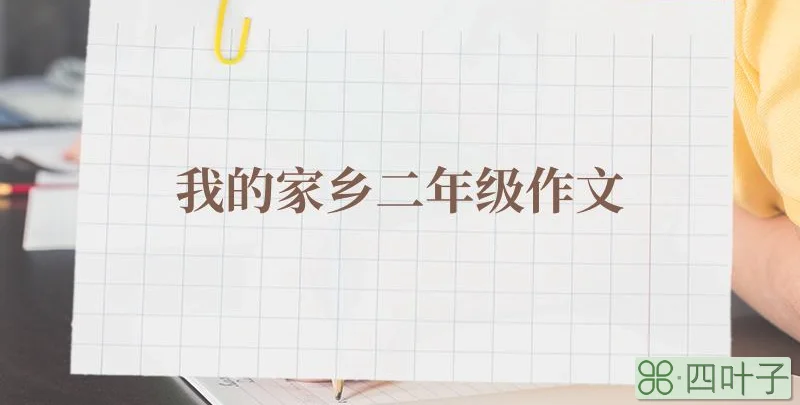 我的家乡二年级作文
四叶子